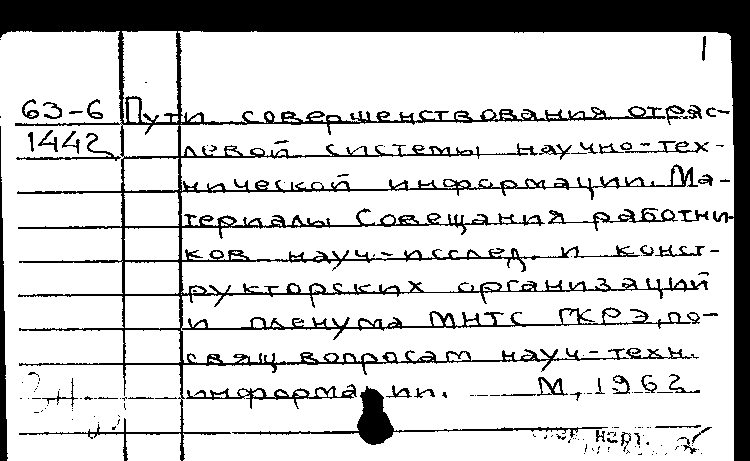 1
63-6 Пути совершенствования отрас-
1442 левой системы научно-тех-
нической информации. Ма-
териалы Совещания работни-
ков науч-исслед. и конст-
рукторских организаций
и пленума МНТС ГКРЭ, по-
свящ. вопросам науч-техн.
информации. М, 1962
3Н.
карт.